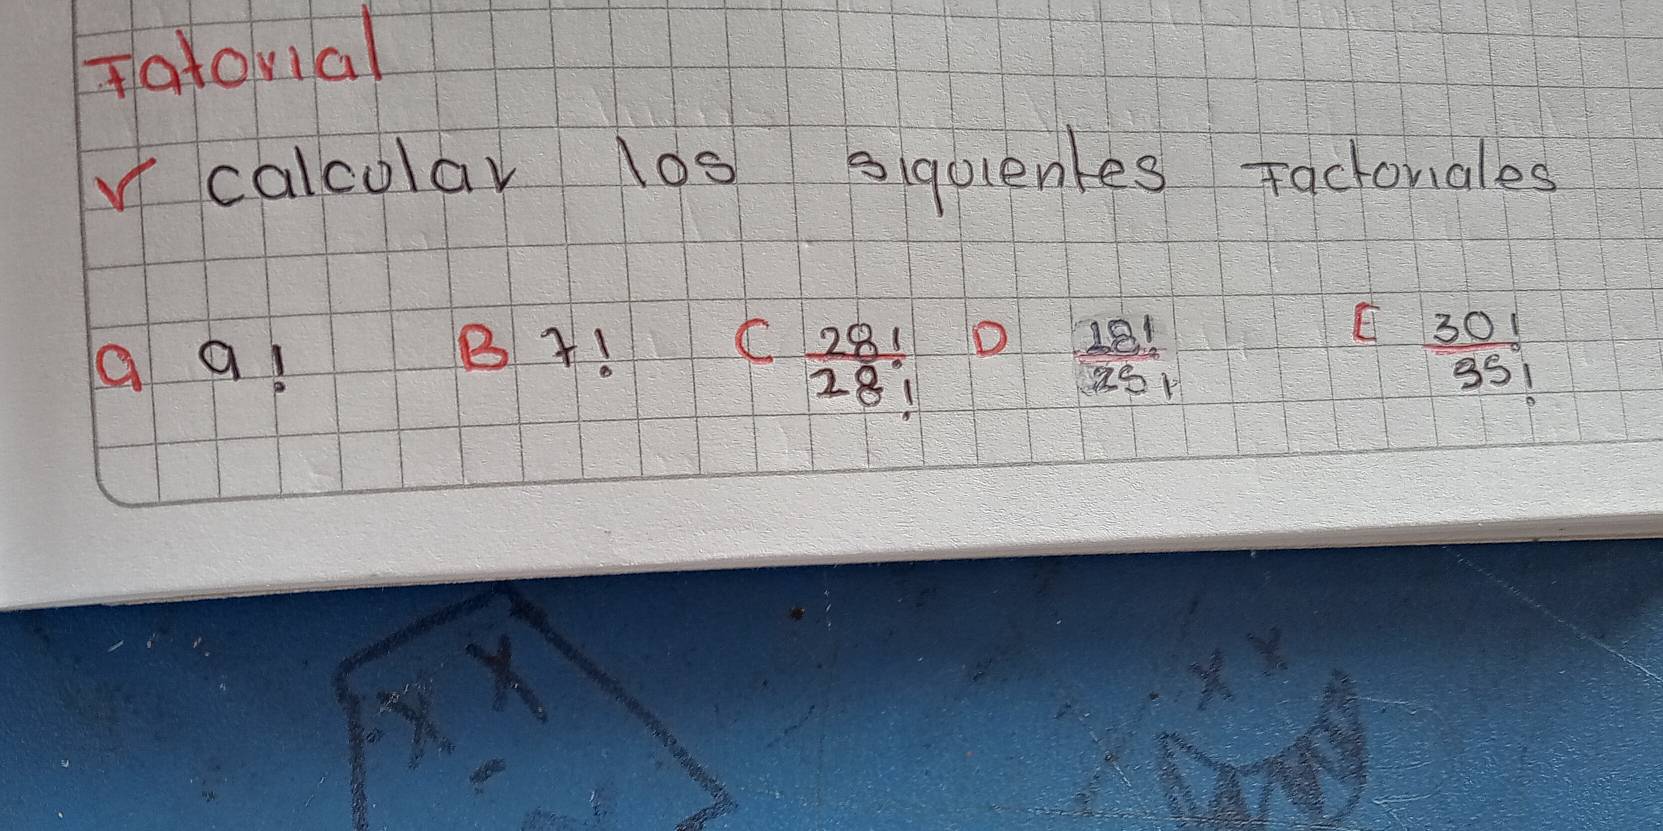 Fatorial
✓ calcular los siguientes Factoriales
a 9! B 7! C 28!/28! D 18!/25! E 30!/35!